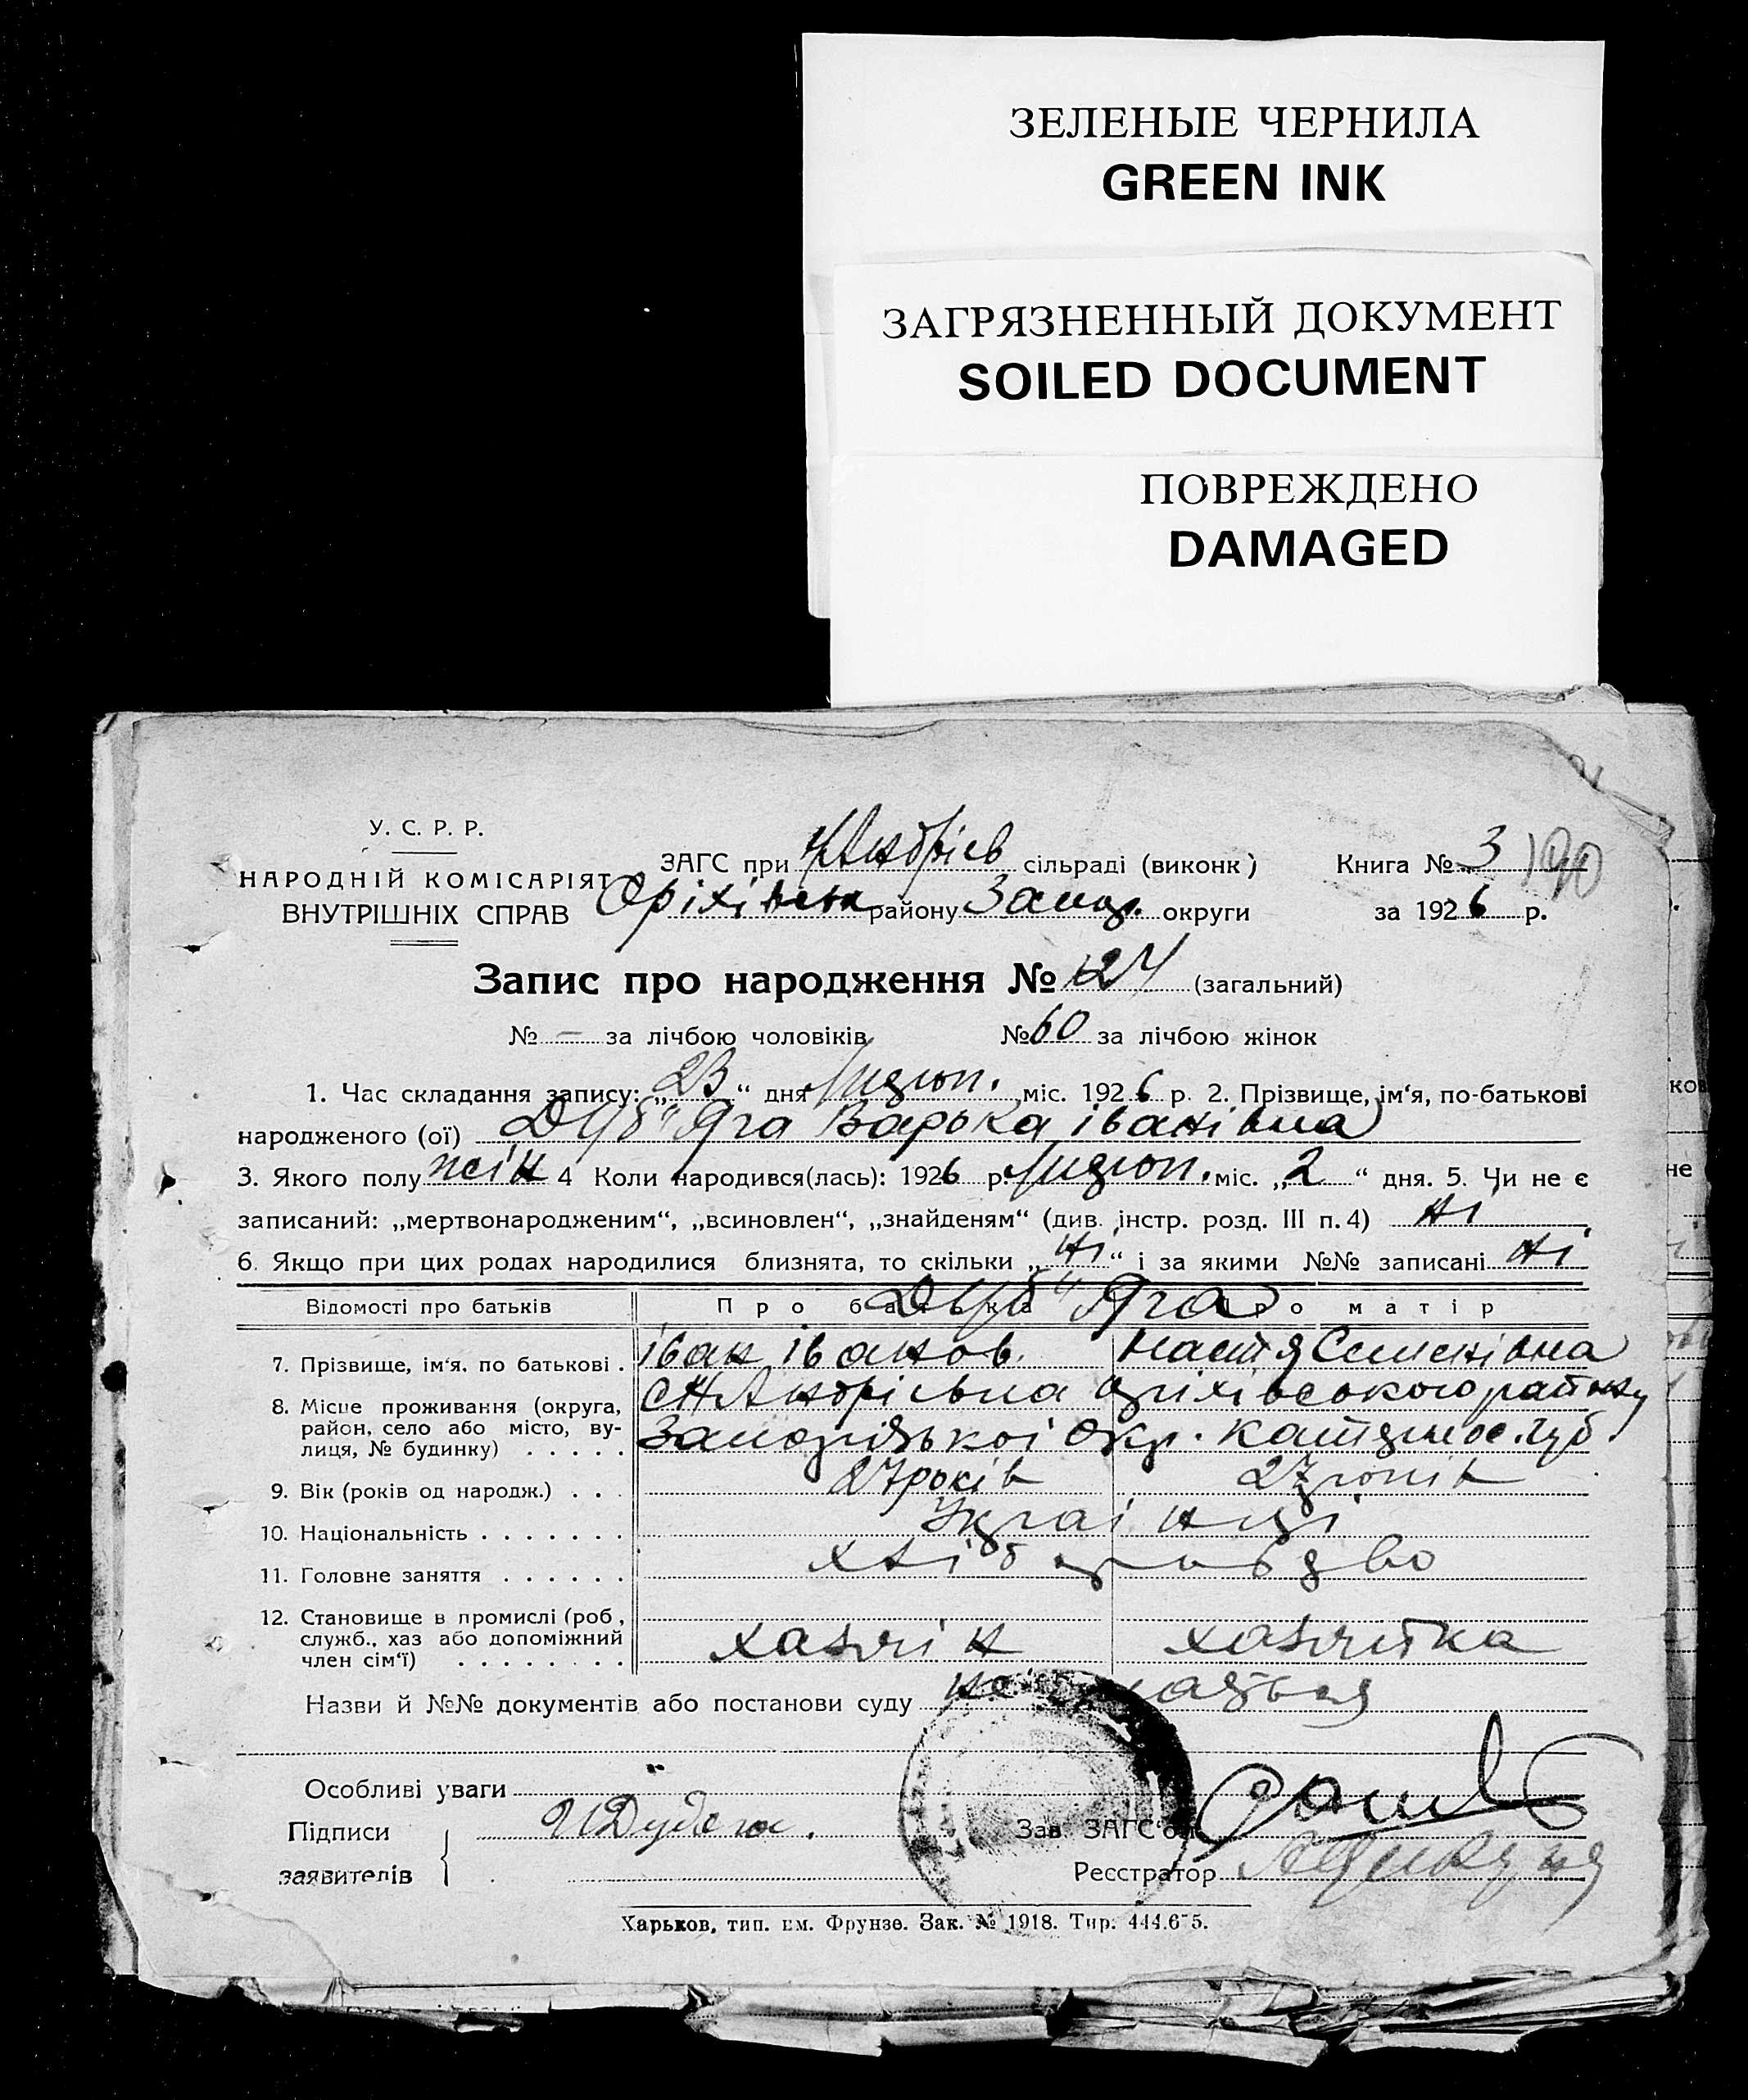 ЗЕЛЕНЫЕ ЧЕРНИЛА
GREEN INK
ЗАГРЯЗНЕННЫЙ ДОКУМЕНТ
SOILED DOCUMENT
ПОВРЕЖДЕНО
DAMAGED
У. С. Р. Р.
НАРОДНІЙ КОМІСАРІЯТ
ВНУТРІШНІХ СПРАВ
ЗАГС при сільраді (виконк) Книга № 3 190
Оріхівськ району Запор. округи за 1926 р.
Запис про народження № 124 (загальний)
№ — за лічбою чоловіків № 60 за лічбою жінок
1. Час складання запису: „23“ дня міс. 1926 р. 2. Прізвище, ім‘я, по-батькові
народженого (ої) Варька івanівна
3. Якого полу жін 4 Коли народився(лась): 1926 р. міс. „2“ дня. 5. Чи не є
записаний: „мертвонародженим“, „всиновлен“, „знайденям“ (див. інстр. розд. III п. 4) Ні
6. Якщо при цих родах народилися близнята, то скільки „Ні“ і за якими №№ записані Ні
Відомості про батьків Про батька Про матір
7. Прізвище, ім‘я, по батькові . іван іванов. Настя Семенівна
8. Місце проживання (округа,
район, село або місто, ву-
лиця, № будинку) . . . . .
Оріхівського району
Запорізької Окр. губ.
9. Вік (років од народж.) . . . 27 років 27 років
10. Національність . . . . . . . Українці
11. Головне заняття . . . . . .
12. Становище в промислі (роб,
служб., хаз або допоміжний
член сім‘ї) . . . . . . . . хазяїн хазяйка
Назви й №№ документів або постанови суду
Особливі уваги
Підписи
заявителів
Зав. ЗАГС‘ом
Реєстратор
Харьков, тип. им. Фрунзе. Зак. № 1918. Тир.